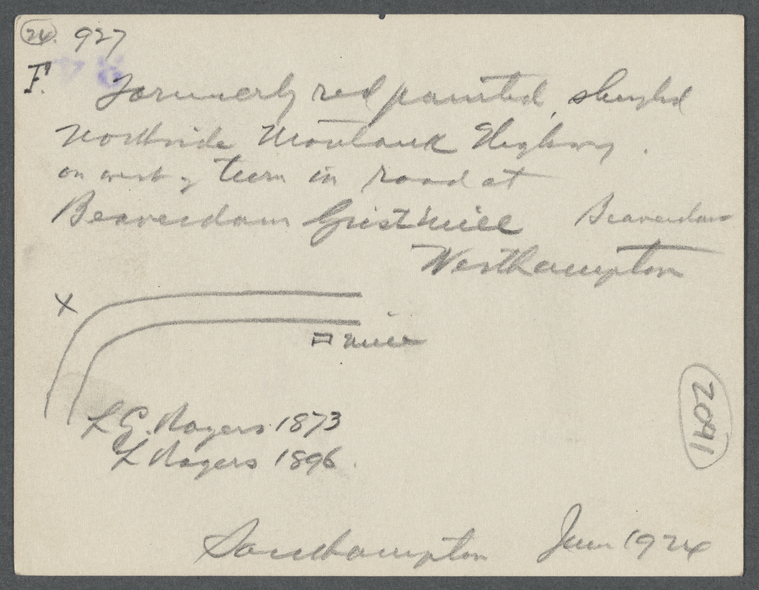 24. 927
F. Formerly red painted, shingled
northside Montauk Highway.
on west of turn in road at
Beaverdam Gristmill Beaverdam
Westhampton
X
mill
L G. Rogers 1873
L Rogers 1896.
2091
Southampton June 1924